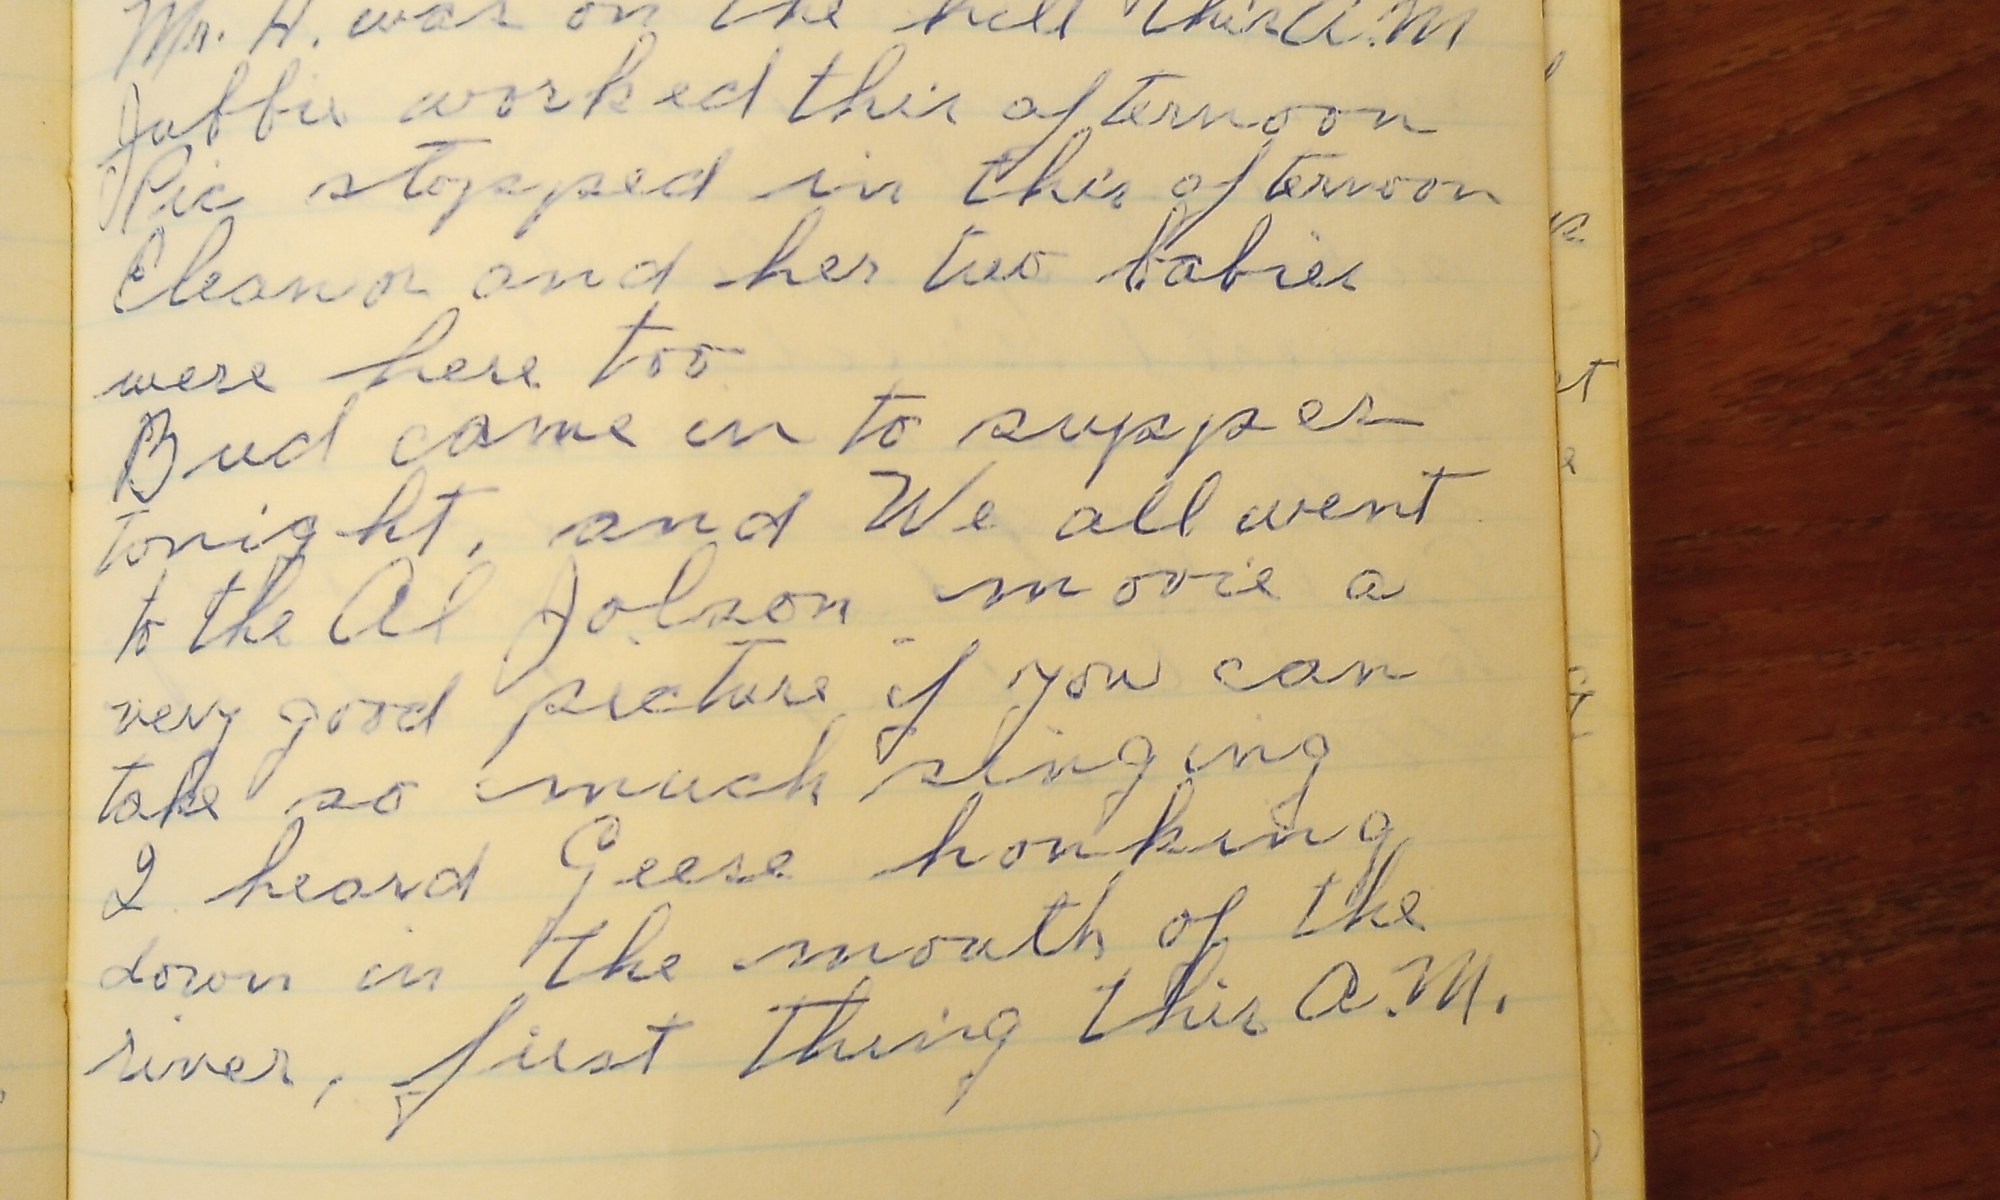 Mr. H. was on the hill this A.M
worked this afternoon
Pic stopped in this afternoon
Eleanor and her two babies
were here too
Bud came in to supper
tonight, and We all went
to the Al Jolson movie a
very good picture if you can
take so much singing
I heard Geese honking
down in the mouth of the
river, first thing this A.M.